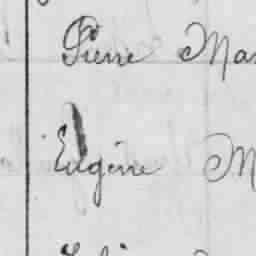 Pierre Ma
Eugène M